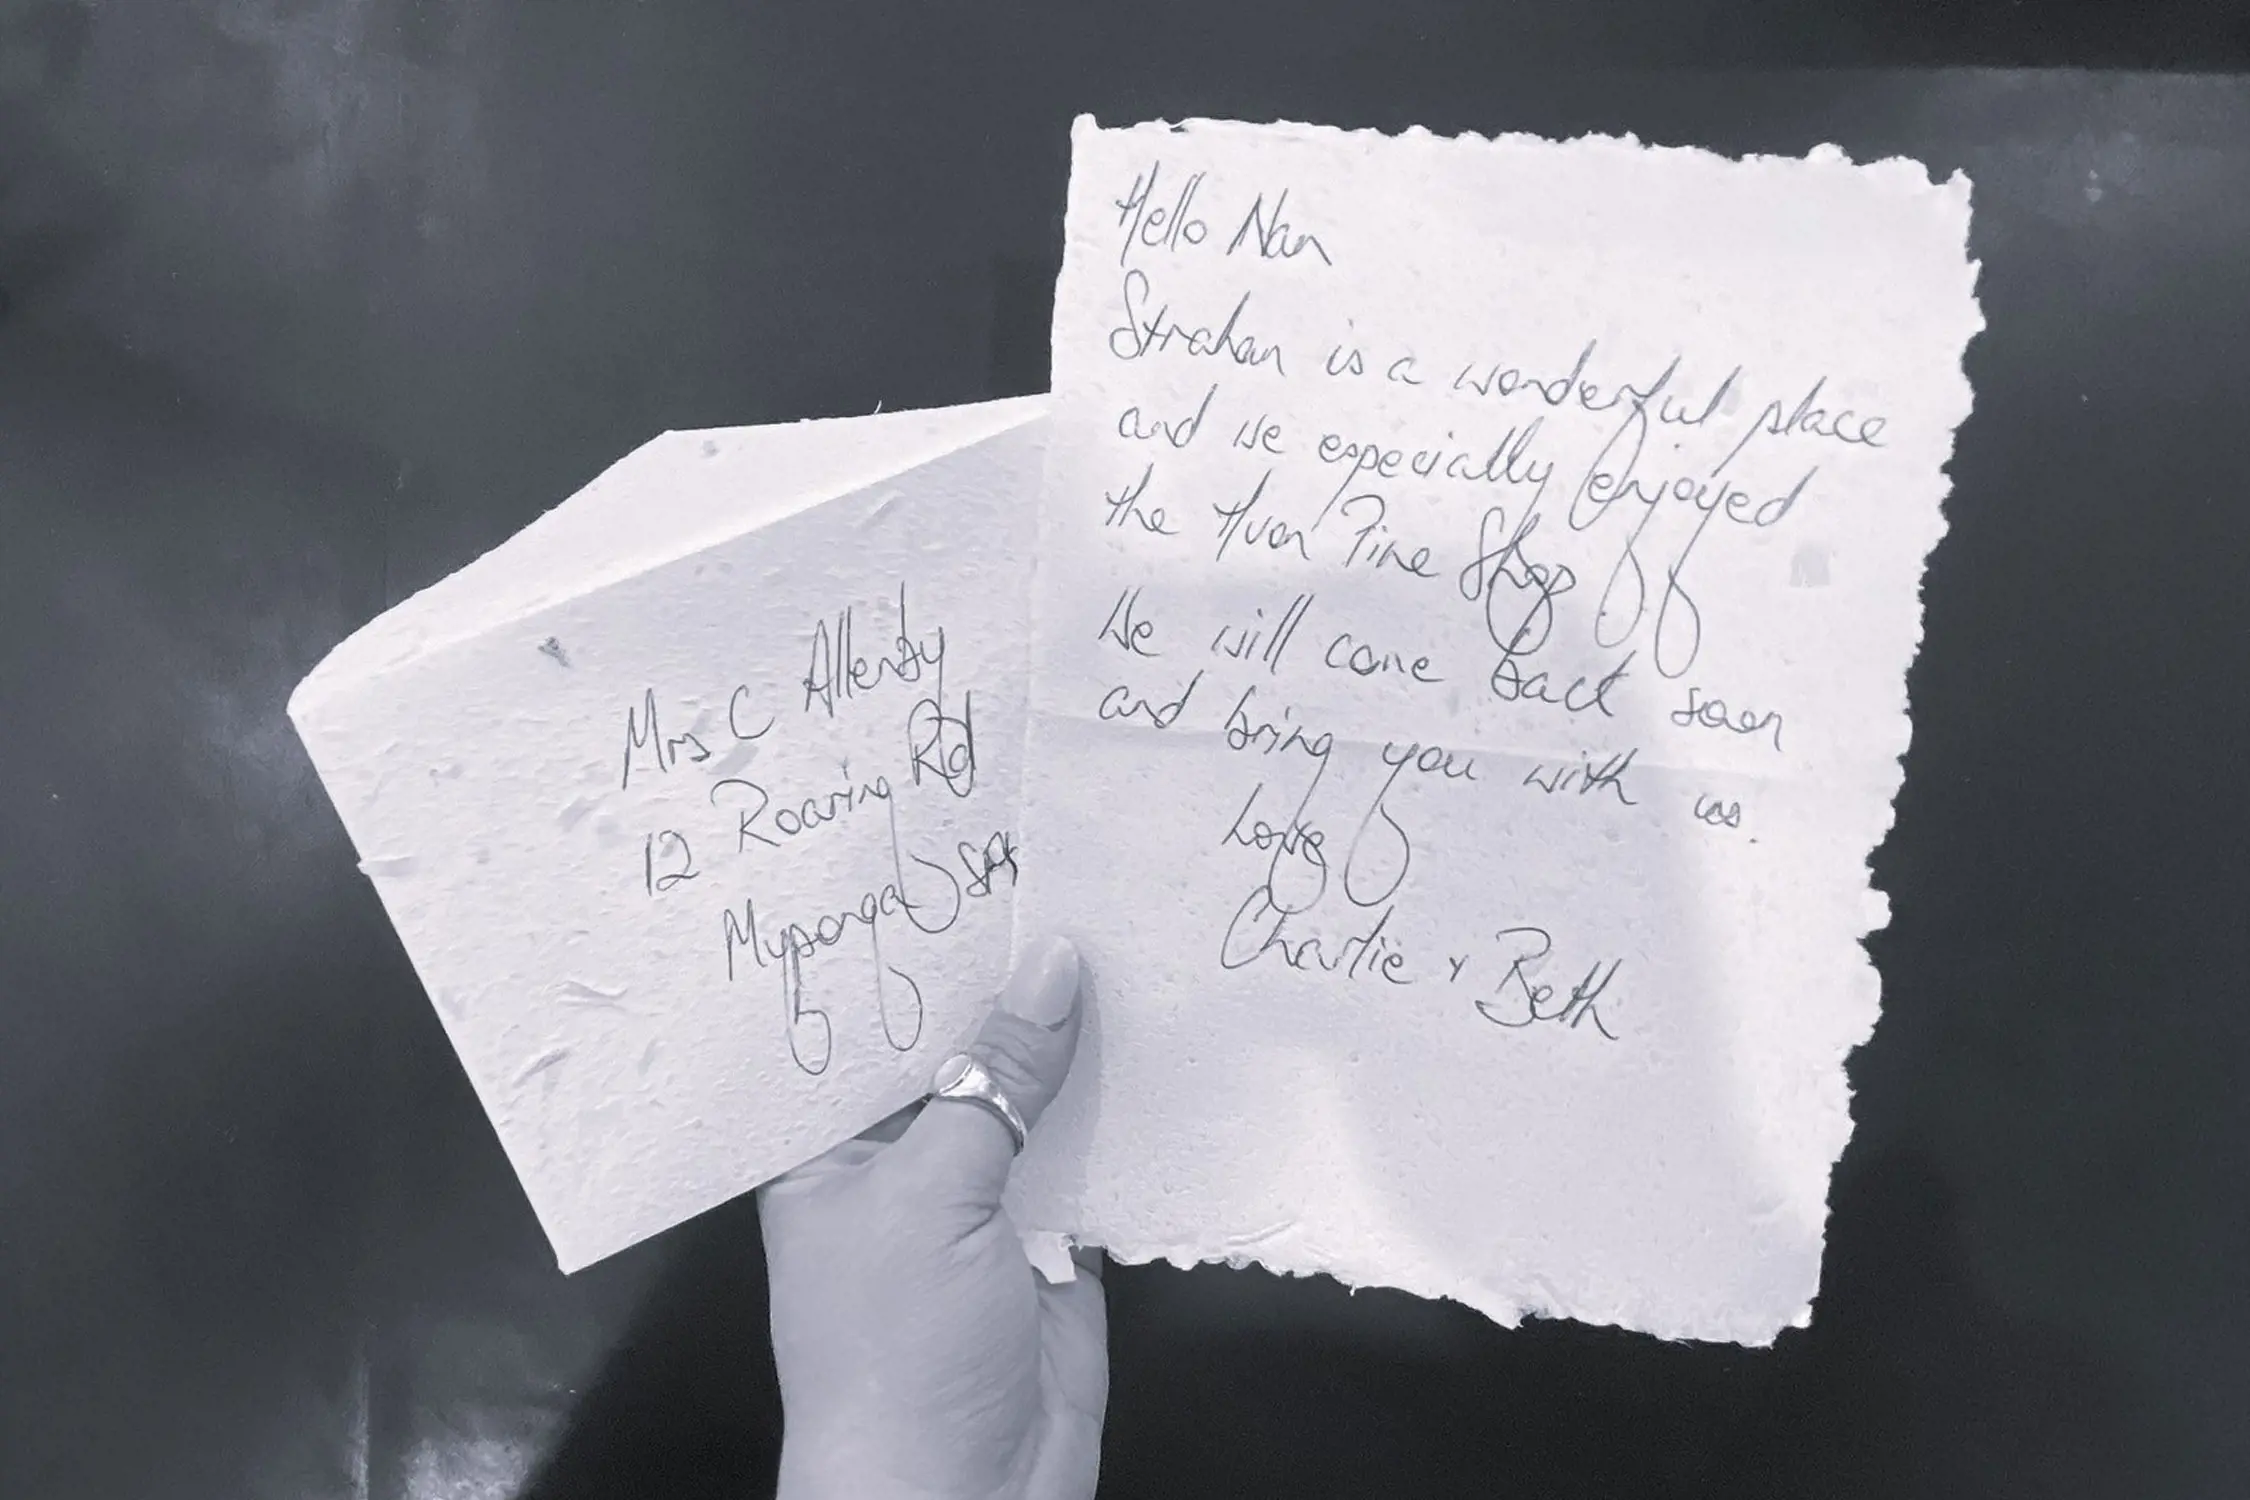 Mrs C Allenby
12 Roaring Rd
Myponga SA
Hello Nan
Strahan is a wonderful place
and we especially enjoyed
the Huon Pine Shop
We will come back soon
and bring you with us.
Love
Charlie + Beth